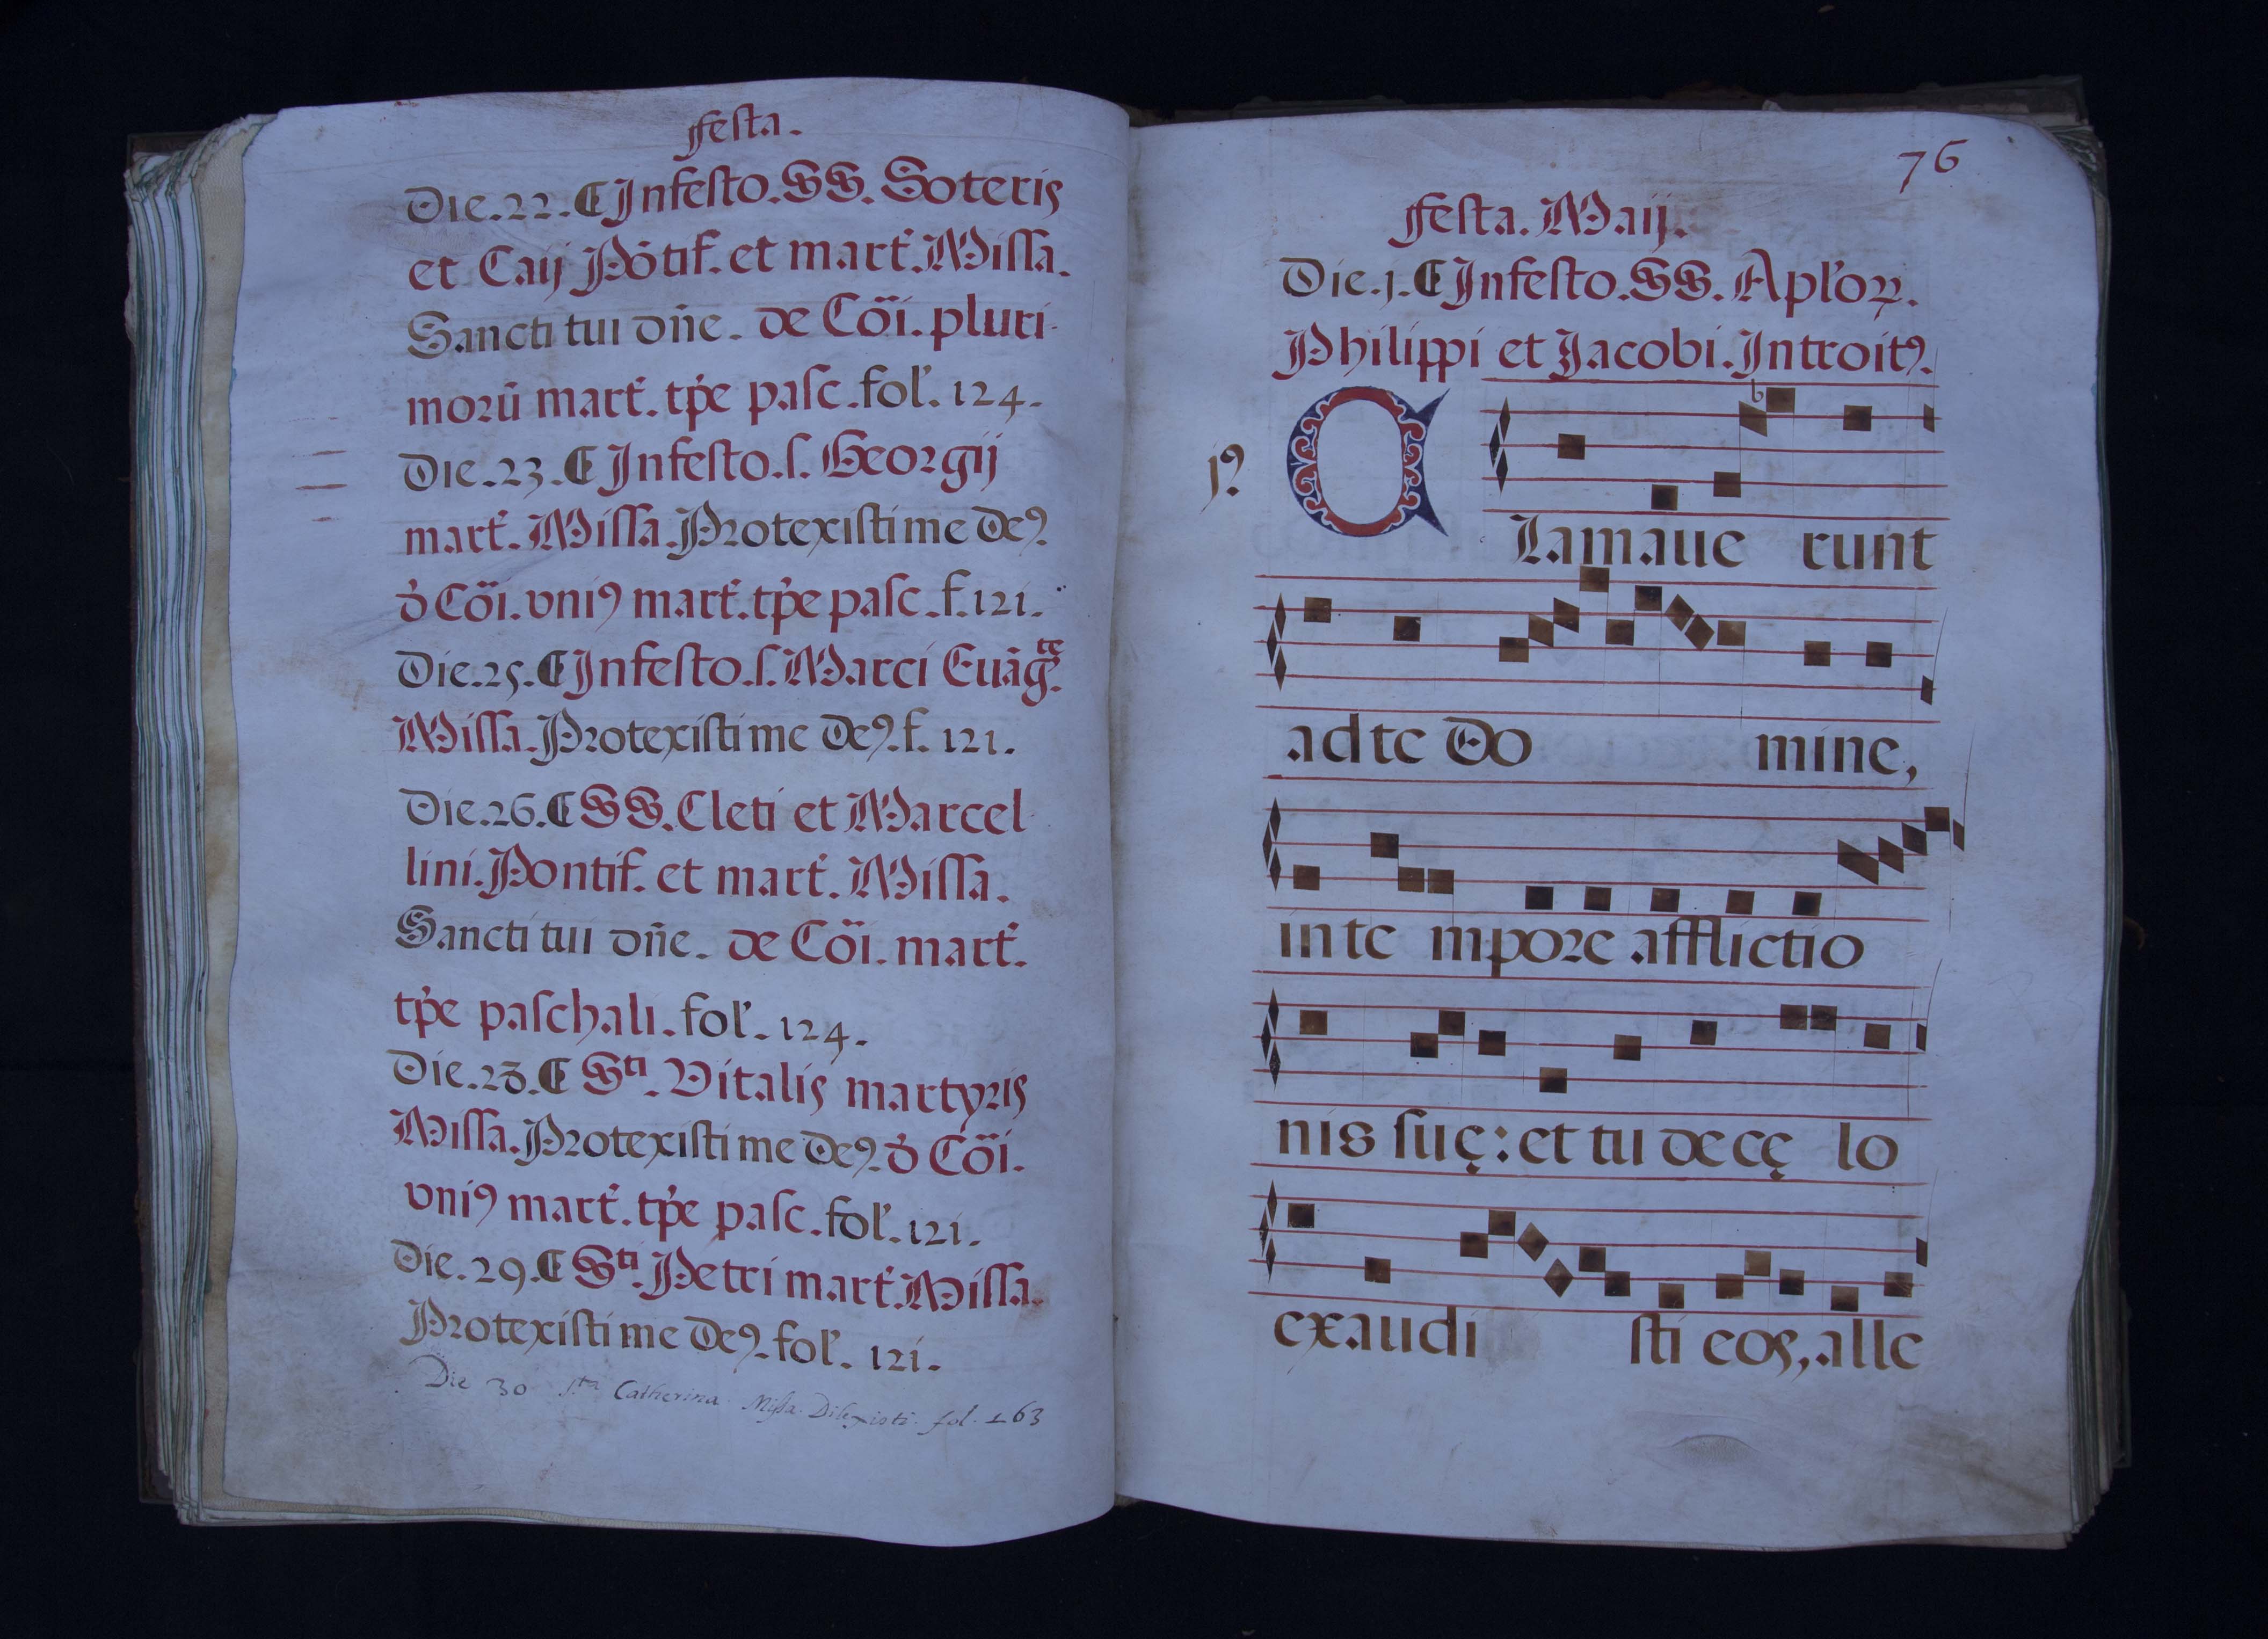 festa.
Die.22.¶Infesto.SS.Soteris
et Caij Põtif.et mart̃.Missa.
Sancti tui dñe. de Cõi.pluri-
morũ mart̃.tp̃e pasc.fol̃.124.
Die.23.¶Infesto.s.Georgij
mart̃.Missa.Protexisti me Deꝰ.
d̉ Cõi.vniꝰ mart̃.tp̃e pasc.f.121.
Die.25.¶Infesto.s.Marci Euãg.te
Missa.Protexisti me Deꝰ.f.121.
Die.26.¶SS.Cleti et Marcel
lini.Pontif.et mart̃.Missa.
Sancti tui dñe. de Cõi.mart̃.
tp̃e paschali.fol̃.124.
Die.28.¶Sti.Vitalis martyris
Missa.Protexisti me Deꝰ.d̉ Cõi.
vniꝰ mart̃.tp̃e pasc.fol̃.121.
Die.29.¶Sti.Petri mart̃.Missa.
Protexisti me Deꝰ.fol̃.121.
Die 30 s.ta Catherina. Missa. Dilexisti. fol. 163
76
festa.Maij.
Die.j.¶Infesto.SS.Apl̃oꝝ.
Philippi et Jacobi.Introitꝰ.
jꝰ
b
Clamaue runt
ad te Do mine,
in te mpore afflictio
nis suę: et tu de cę lo
exaudi sti eos, alle